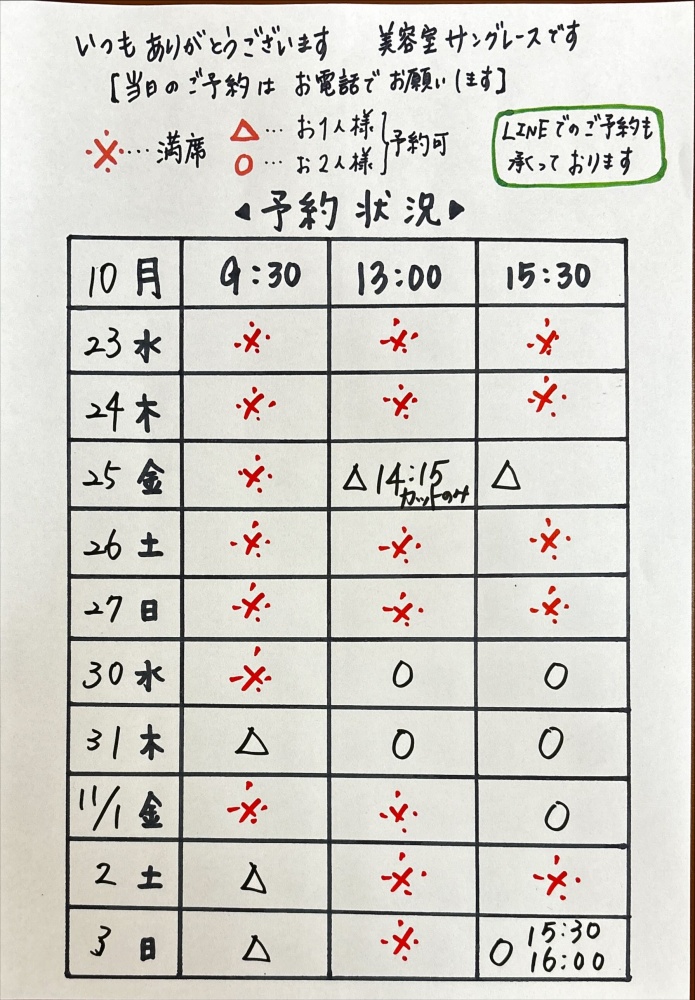 いつもありがとうございます 美容室サングレースです
[当日のご予約は お電話でお願いします]
※…満席
△…お1人様
○…お2人様
予約可
LINEでのご予約も
承っております
◀予約状況▶
10月 9:30 13:00 15:30
23 水 ※ ※ ※
24 木 ※ ※ ※
25 金 ※ △14:15 カットのみ △
26 土 ※ ※ ※
27 日 ※ ※ ※
30 水 ※ ○ ○
31 木 △ ○ ○
11/1 金 ※ ※ ○
2 土 △ ※ ※
3 日 △ ※ ○ 15:30 16:00